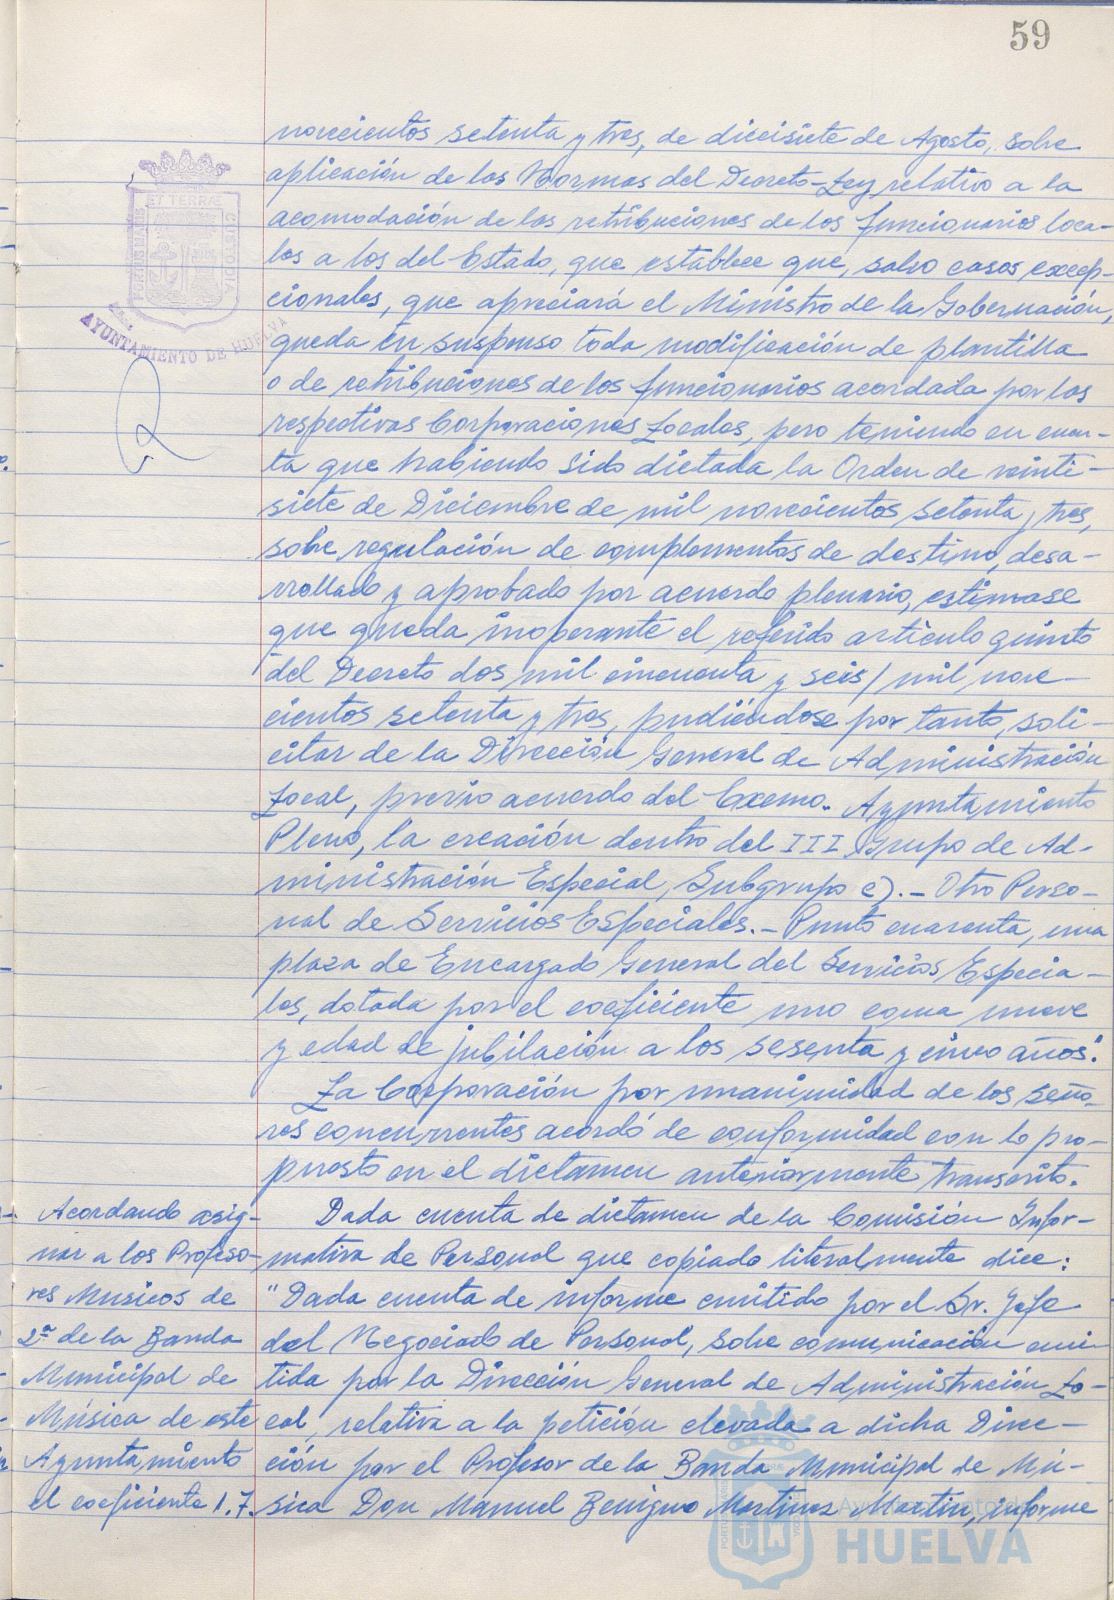 59
novecientos setenta y tres, de diecisiete de Agosto, sobre
aplicación de las Normas del Decreto-Ley, relativo a la
acomodación de las retribuciones de los funcionarios loca-
les a los del Estado, que establece que, salvo casos excep-
cionales, que apreciará el Ministro de la Gobernación,
queda en suspenso toda modificación de plantilla
o de retribuciones de los funcionarios acordada por las
respectivas Corporaciones Locales, pero teniendo en cuen-
ta que habiendo sido dictada la Orden de veinti-
siete de Diciembre de mil novecientos setenta y tres,
sobre regulación de complementos de destino, desa-
rrollado y aprobado por acuerdo plenario, estímase
que queda inoperante el referido artículo quinto
del Decreto dos mil cincuenta y seis/ mil nove-
cientos setenta y tres, pudiéndose por tanto, soli-
citar de la Dirección General de Administración
Local, previo acuerdo del Excmo. Ayuntamiento
Pleno, la creación dentro del III Grupo de Ad-
ministración Especial, Subgrupo c).- Otro Perso-
nal de Servicios Especiales.- Punto cuarenta, una
plaza de Encargado General del Servicios Especia-
les, dotada por el coeficiente uno coma nueve
y edad de jubilación a los sesenta y cinco años".
La Corporación por unanimidad de los seño-
res concurrentes acordó de conformidad con lo pro-
puesto en el dictamen anteriormente transcrito.
Acordando asig-
nar a los Profeso-
res Musicos de
2ª de la Banda
Municipal de
Música de este
Ayuntamiento
el coeficiente 1.7.
Dada cuenta de dictamen de la Comisión Infor-
mativa de Personal que copiado literalmente dice:
"Dada cuenta de informe emitido por el Sr. Jefe
del Negociado de Personal, sobre comunicación emi-
tida por la Dirección General de Administración Lo-
cal, relativa a la petición elevada a dicha Direc-
ción por el Profesor de la Banda Municipal de Mú-
sica Don Manuel Benigno Martinez Martin, informe
PORTUS MARIS ET TERRÆ CUSTODIA
AYUNTAMIENTO DE HUELVA
Ayuntamiento de
HUELVA